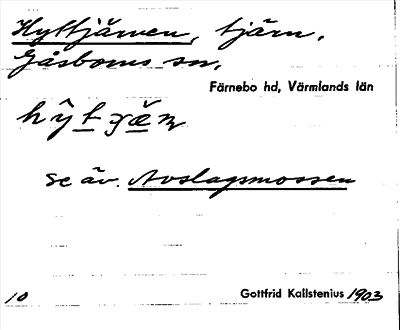 Hyttjärnen, tjärn.
Gåsborns sn.
Färnebo hd, Värmlands län
se äv. Avslagsmossen
10
Gottfrid Kallstenius 1903